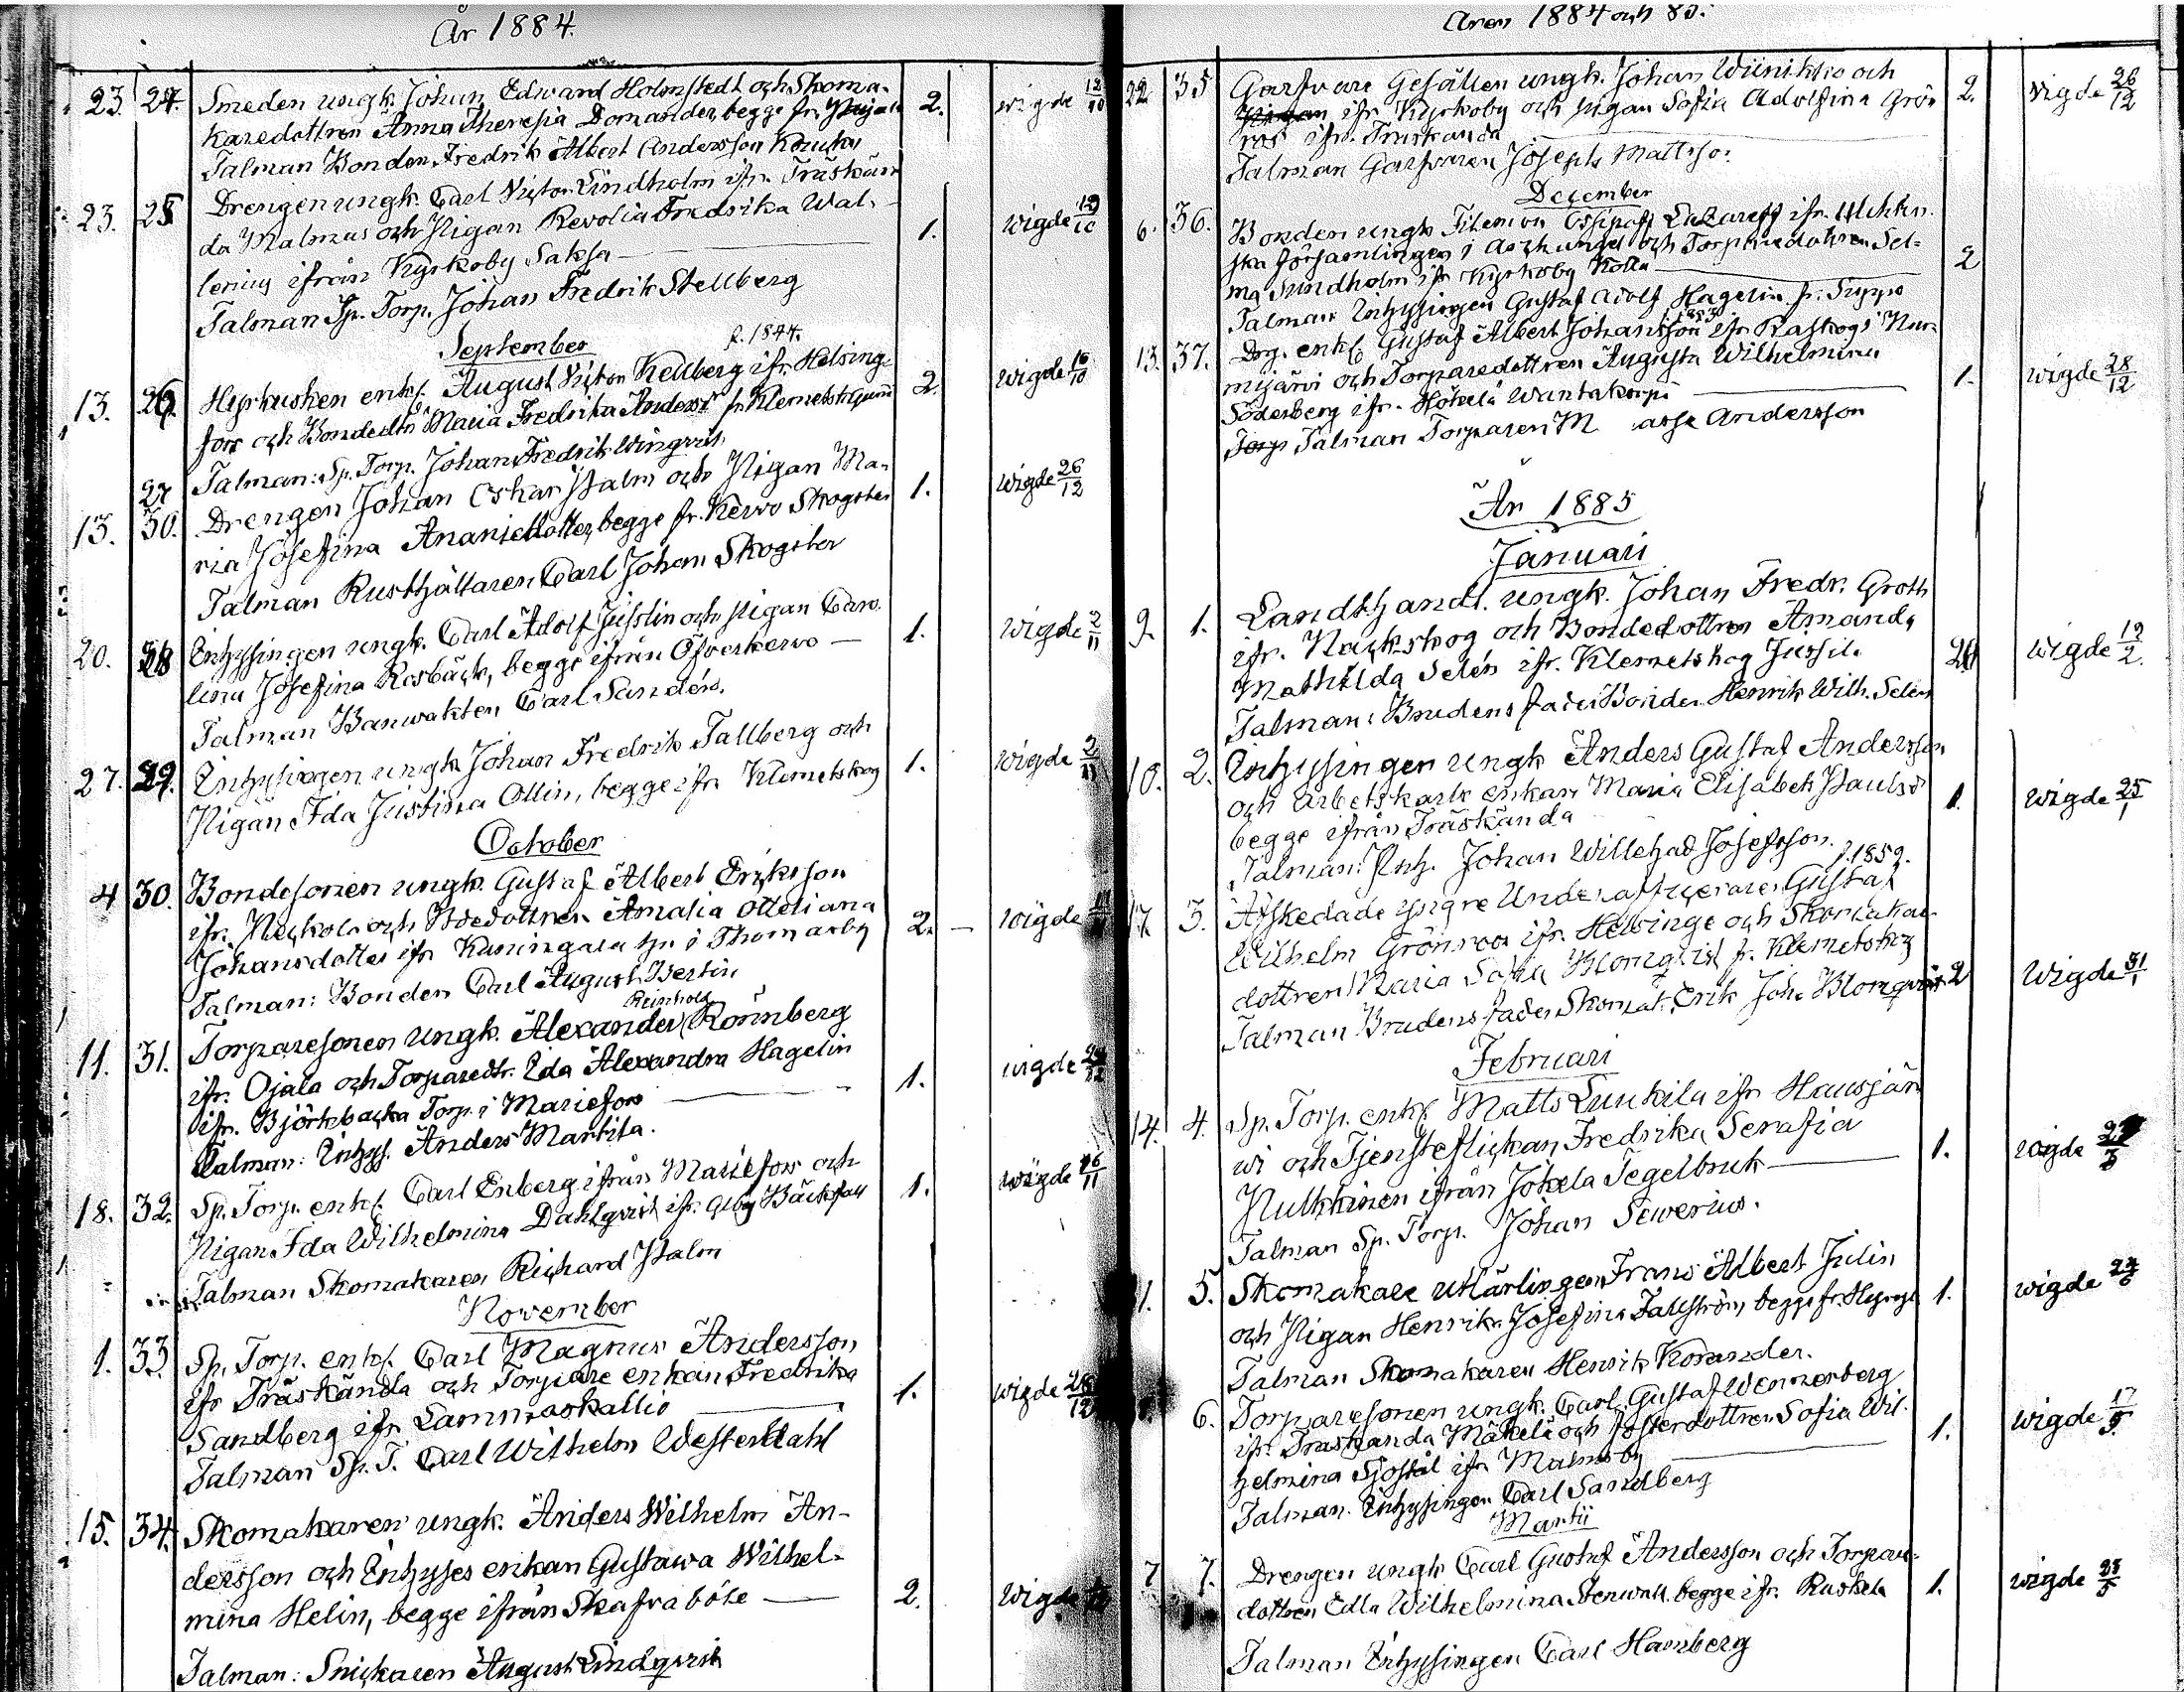 År 1884.
23. 24. Smeden ungk. Johan Edward Holmstedt och Skoma-
karedottren Anna Theresia Domander, begge fr. 2. wigde 12/10
Talman Bonden Fredrik Albert Andersson
23. 25 Drengen ungk. Carl Victor Lindholm ifr. Träskän-
da Malmus och Pigan Revolia Fredrika Wal- 1. wigde 19/10
lenius ifrån Kyrkoby Saksa
Talman Sp. Torp. Johan Fredrik Stellberg
September f. 1844.
13. 26. Hyrkusken enkl. August Victor Kellberg ifr. Helsing- 2. wigde 16/10
fors och Bondedtr Maria Fredrika Andersdr fr. Klemetskog
Talman: Sp. Torp. Johan Fredrik Wingvist
27
13. 30. Drengen Johan Oskar Palm och Pigan Ma- 1. wigde 26/12
ria Josefina Ananiedotter, begge fr. Kervo Skogster
Talman Rusthållaren Carl Johan Skogster
20. 28 Inhysingen ungk. Carl Adolf Juslin och Pigan Caro- 1. wigde 2/11
lina Josefina Rosbäck, begge ifrån Öfverkervo
Talman Banwakten Carl Sandén.
27. 29. Inhysingen ungk Johan Fredrik Tallberg och 1. wigde 2/11
Pigan Ida Justina Ollin, begge ifr. Klemetskog
October
4 30. Bondesonen ungk. Gustaf Albert Eriksson
ifr. Nickola och Bdedottren Amalia Otteliana 2. wigde
Johansdotter ifr Kaningara by i Thomasby
Talman: Bonden Carl August Bertin
Reinhold
11. 31. Torparesonen ungk. Alexander Rönnberg
ifr. Ojala och Torparedtr. Eda Alexandra Hagelin 1. wigde
ifr. Björkbacka Torp i Mariefors
Talman: Inhys. Anders Martita.
18. 32. Sp. Torp. enkl. Carl Enberg ifrån Mariefors och 1. wigde 16/11
Pigan Ida Wilhelmina Dahlqvist ifr. Alby Bäckfall
Talman Skomakaren Richard Palm
November
1. 33 Sp. Torp. enkl. Carl Magnus Andersson
ifr Träskända och Torpare enkan Fredrika 1. wigde 26/12
Sandberg ifr. Lammaskallio
Talman Sp. T. Carl Wilhelm Westerdahl
15. 34. Skomakaren ungk. Anders Wilhelm An-
dersson och Inhyses enkan Gustawa Wilhel-
mina Helin, begge ifrån Skafraböle 2. wigde
Talman: Snickaren August Lindqvist
Åren 1884 och 85.
22 35 Garfvare Gesällen ungk. Johan Wiinikko och 2. wigde 26/12
Pigan ifr. Kyrkoby och pigan Sofia Adolfina Grön-
roos ifr. Träskända
Talman Garfvaren Joseph Mattsson
December
6. 36. Bonden ungk Filemon Ossipoff Lazareff ifr. Utekln.
ska församlingen i Archangel och Torparedottren Sel- 2
ma Sundholm ifr Kyrkoby Kolla
Talman Inhysingen Gustaf Adolf Hagelin fr. Seppo
13. 37. Drg. enkl. Gustaf Albert Johansson ifr Raskogs i Nur-
mijärvi och Torparedottren Augusta Wilhelmina 1. wigde 28/12
Söderberg ifr. Hökelä Wantakorpi
Torp Talman Torparen M asse Andersson
År 1885
Januari
9. 1. Landthandl. ungk. Johan Fredr. Groth
ifr. Nackskog och Bondedottren Amanda wigde 19/2.
Mathilda Selén ifr. Klemetskog Jussila
Talman: Brudens fader Bonden Henrik Wilh. Selén
10. 2. Inhysingen ungk Anders Gustaf Andersson
och Arbetskarls enkan Maria Elisabeth Paulsdr 1. wigde 25/1
begge ifrån Träskända
Talman: Inh. Johan Willehad Josefsson.
f. 1859.
17. 3. Afskedade yngre Underofficeraren Gustaf
Wilhelm Grönroos ifr. Helsinge och Skomakare-
dottren Maria Sofia Blomqvist fr. Klemetskog wigde 31/1
Talman Brudens fader Skomak. Erik Joh. Blomqvist 2
Februari
14. 4. Sp. Torp. enkl Matts Lunkila ifr Hausjär
wi och Tjensteflickan Fredrika Serafia 1. wigde
Hulkkinen ifrån Jokela Tegelbruk
Talman Sp. Torp. Johan Sewerius.
1. 5. Skomakare utlärlingen Frans Albert Julin
och Pigan Henrika Josefina Fallström, begge fr. 1. wigde
Talman Skomakaren Henrik Korander.
6. Torparesonen ungk. Carl Gustaf Wennerberg
ifr. Träskända Mäkelä och fosterdottren Sofia Wil- 1. wigde 17/5.
helmina Sjöstål ifr Malmsby
Talman. Inhysingen Carl Sandberg
Martii
7 7. Drengen ungk Carl Gustaf Andersson och Torpare-
dottren Edla Wilhelmina Stenwall begge ifr. Ruskela 1. wigde 25/5
Talman Inhysingen Carl Hamberg